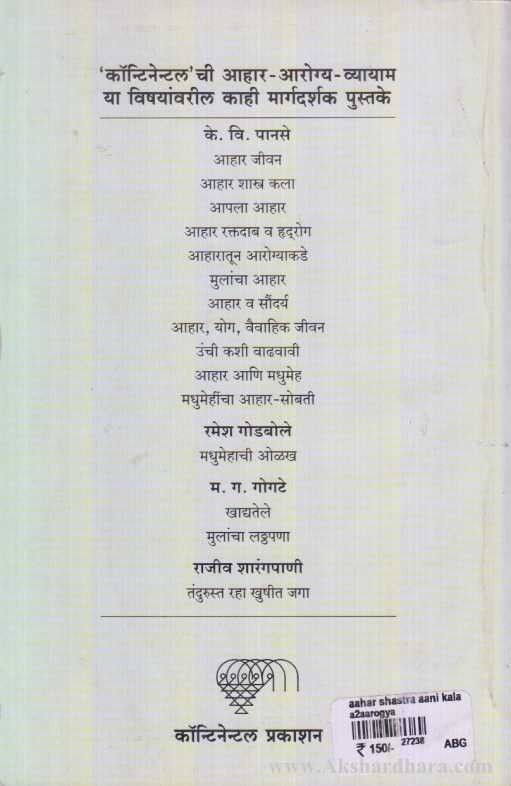 'कॉन्टिनेन्टल'ची आहार-आरोग्य-व्यायाम
या विषयांवरील काही मार्गदर्शक पुस्तके
के. वि. पानसे
आहार जीवन
आहार शास्त्र कला
आपला आहार
आहार रक्तदाब व हृद्‌रोग
आहारातून आरोग्याकडे
मुलांचा आहार
आहार व सौंदर्य
आहार, योग, वैवाहिक जीवन
उंची कशी वाढवावी
आहार आणि मधुमेह
मधुमेहींचा आहार-सोबती
रमेश गोडबोले
मधुमेहाची ओळख
म. ग. गोगटे
खाद्यतेले
मुलांचा लठ्ठपणा
राजीव शारंगपाणी
तंदुरुस्त रहा खुषीत जगा
कॉन्टिनेन्टल प्रकाशन
aahar shastra aani kala
a2aarogya
₹ 150/- 27238 ABG
www.Akshardhara.com